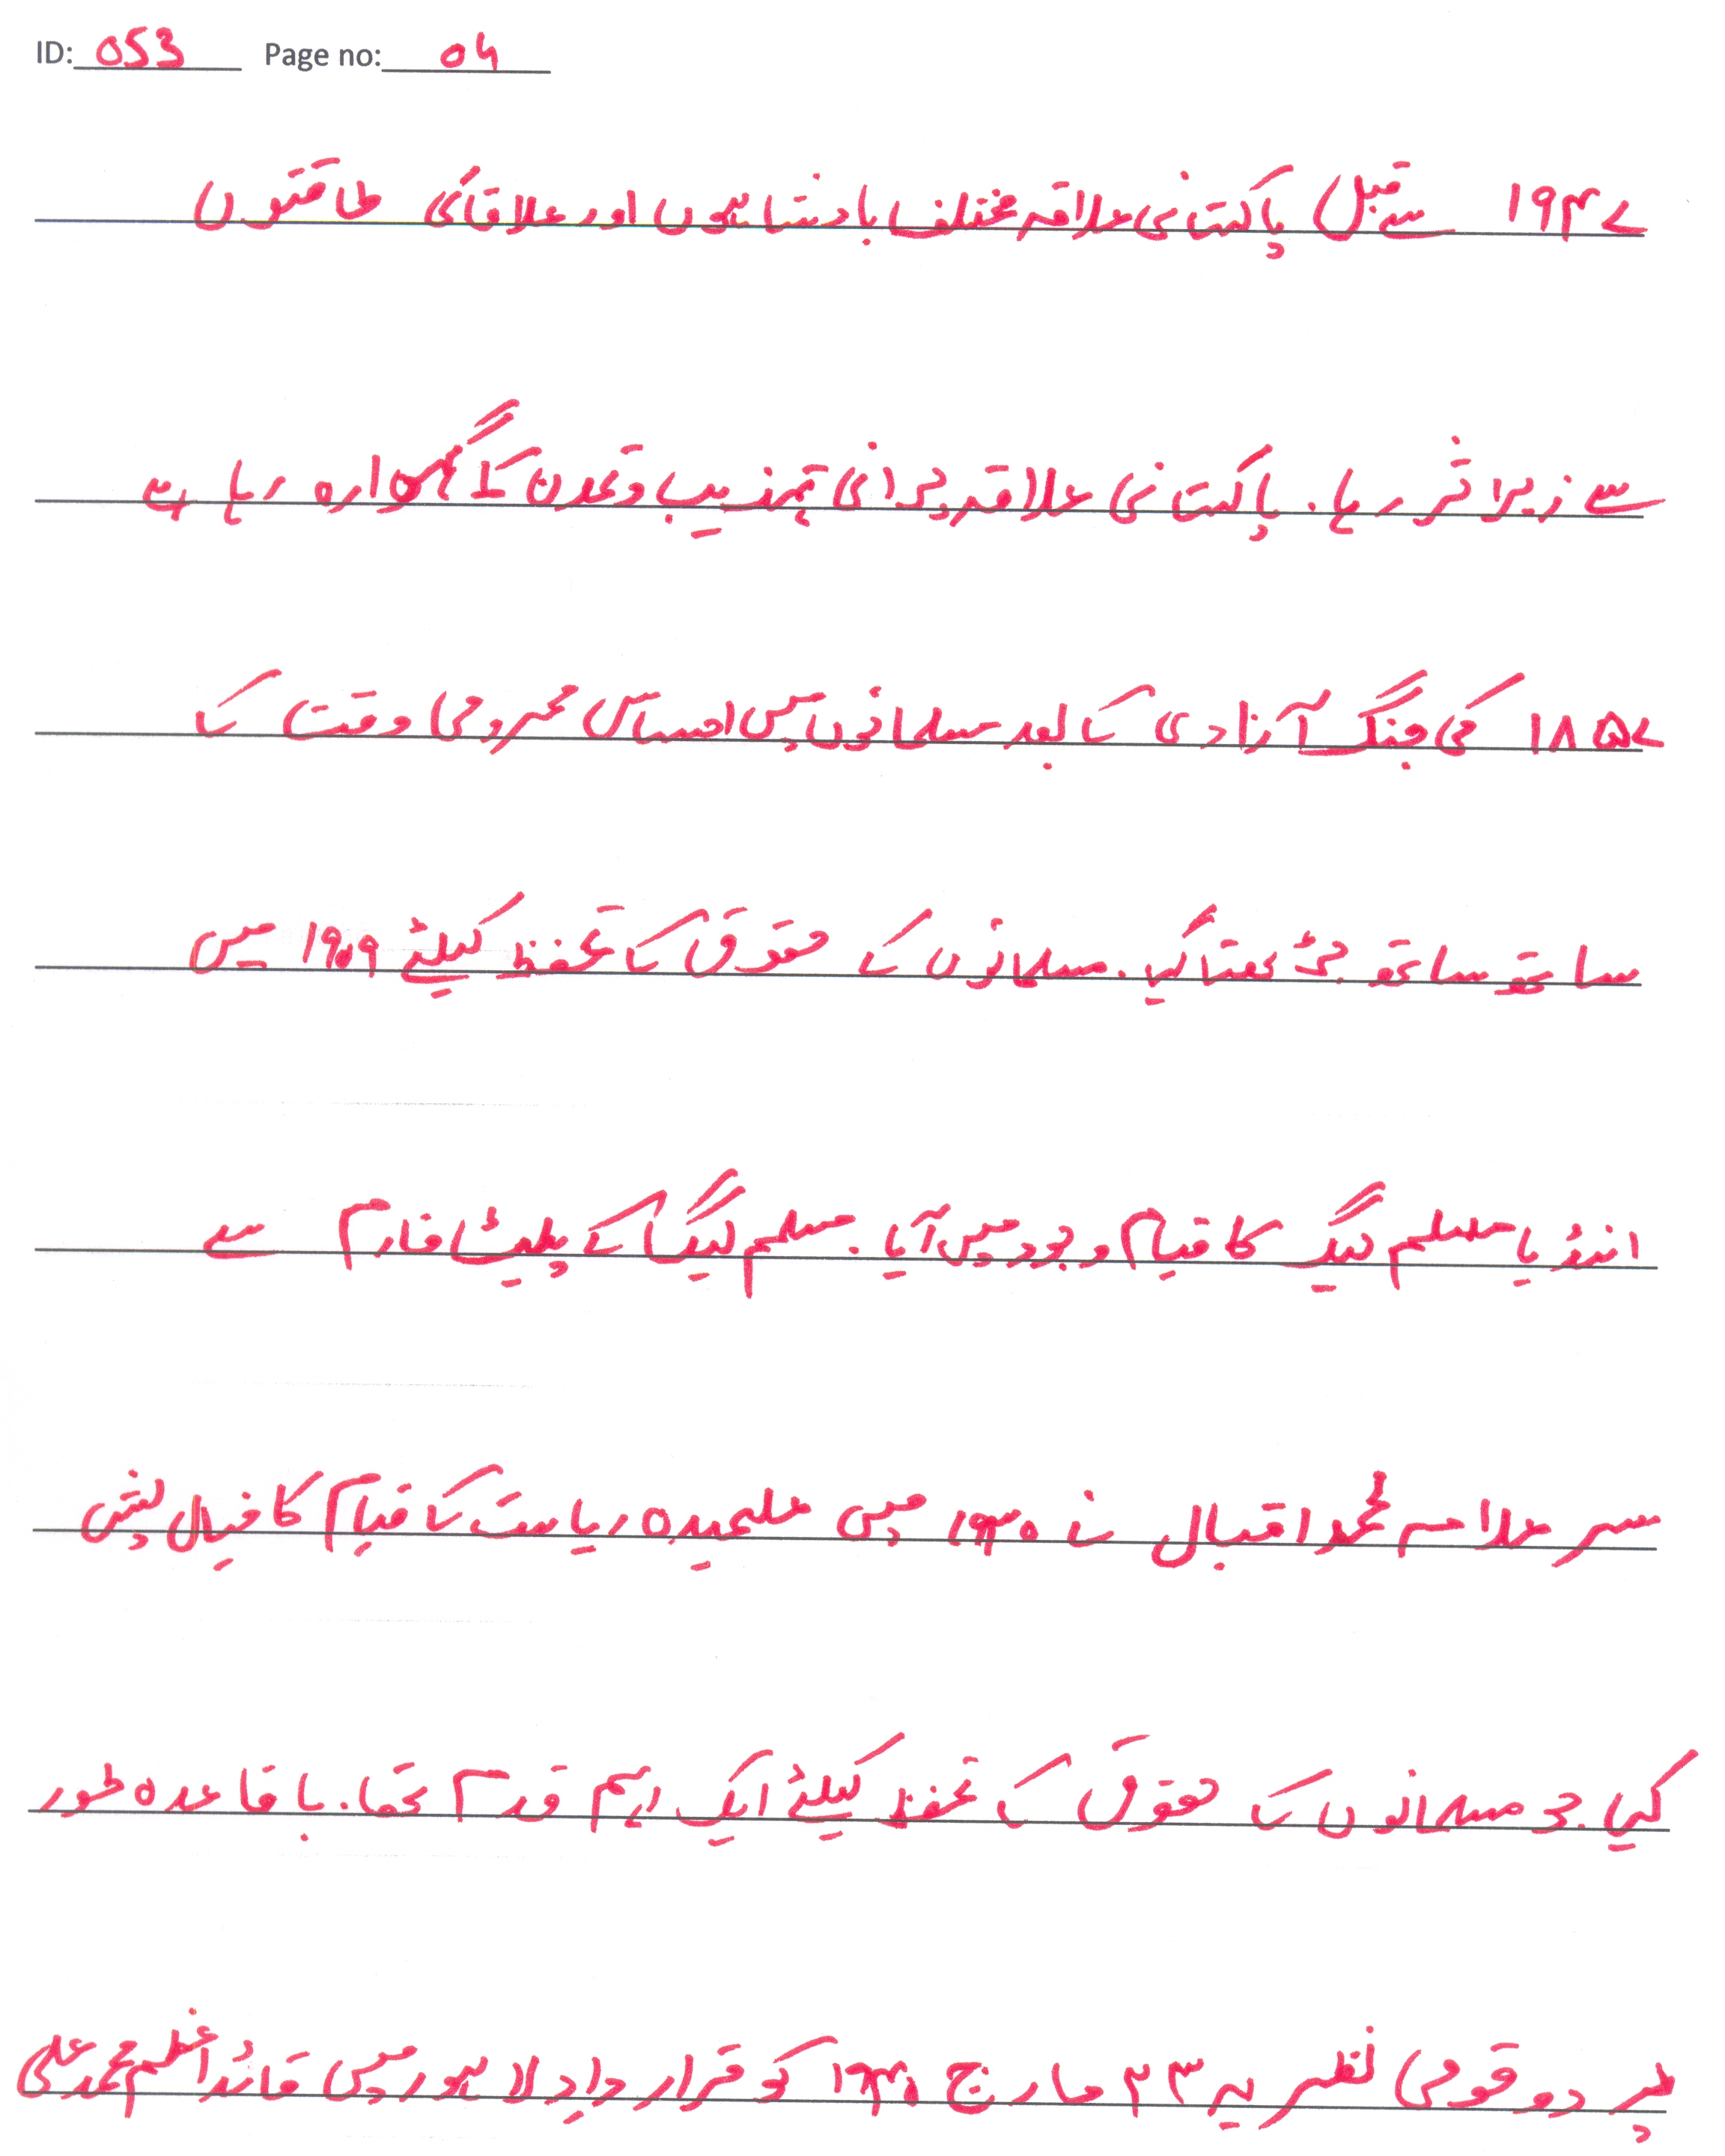 ID: 053 Page no: 04
۱۹۴۷ سے قبل پاکستانی علاقہ مختلف بادشاہوں اور علاقائی طاقتوں
سے زیر اثر رہا۔ پاکستانی علاقہ پرانی تہذیب و تمدن کا گہوارہ رہا ہے
۱۸۵۷ کی جنگ آزادی کے بعد مسلمانوں میں احساس محرومی وقت کے
ساتھ ساتھ بڑھتا گیا۔ مسلمانوں کے حقوق کے تحفظ کیلئے ۱۹۰۹ میں
انڈیا مسلم لیگ کا قیام وجود میں آیا۔ مسلم لیگ کے پلیٹ فارم سے
سر علامہ محمد اقبال نے ۱۹۳۰ میں علیحدہ ریاست کے قیام کا خیال پیش
کیا۔ جو مسلمانوں کے حقوق کے تحفظ کیلئے ایک اہم قدم تھا۔ باقاعدہ طور
پر دو قومی نظریہ ۲۳ مارچ ۱۹۴۰ کو قرار داد لاہور میں قائد اعظم محمد علی